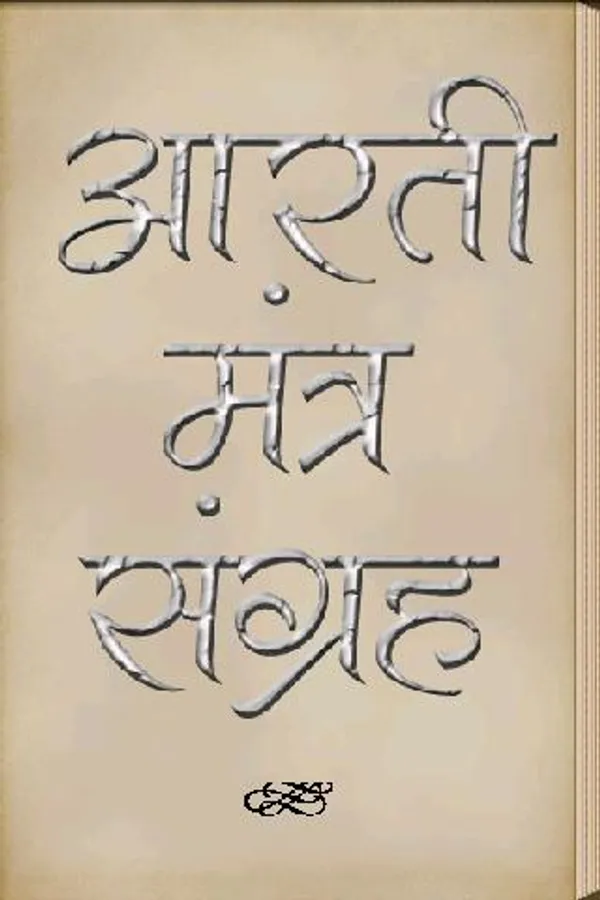 आरती
मंत्र
संग्रह